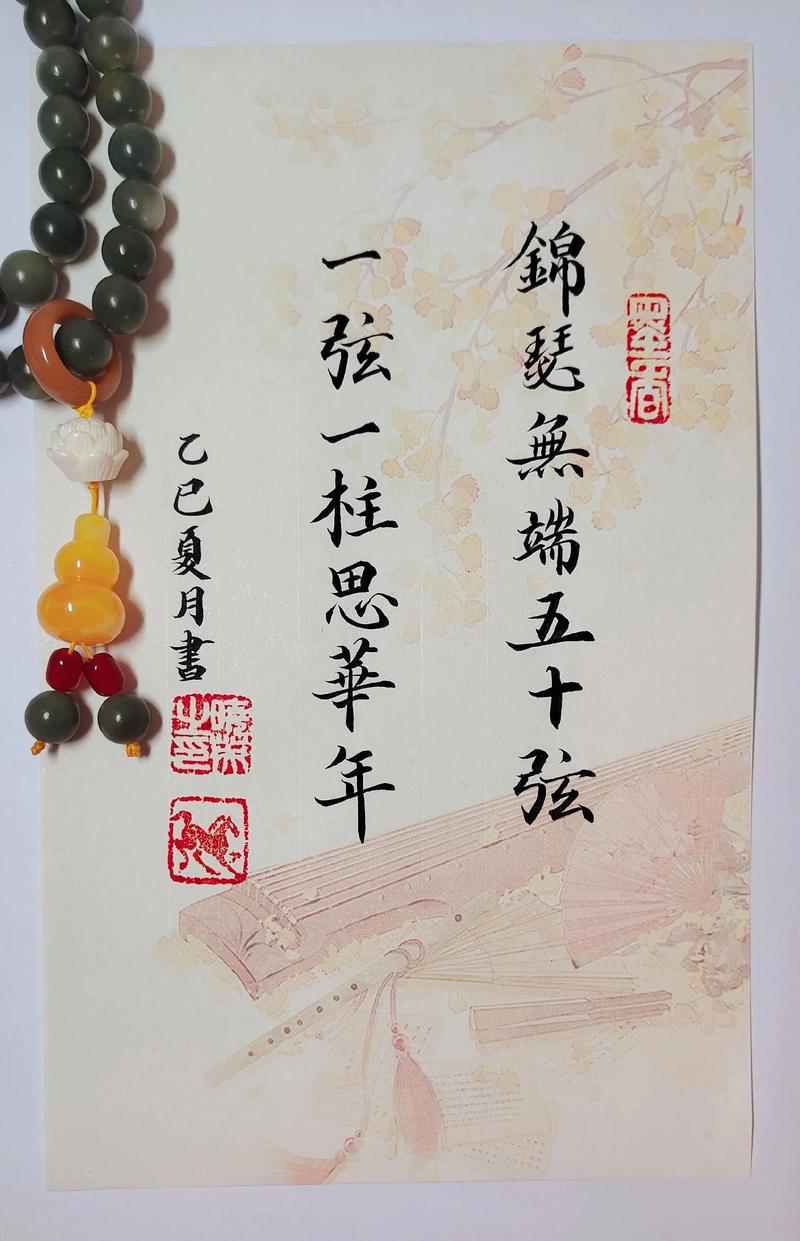 墨香
錦瑟無端五十弦
一弦一柱思華年
乙巳夏月書